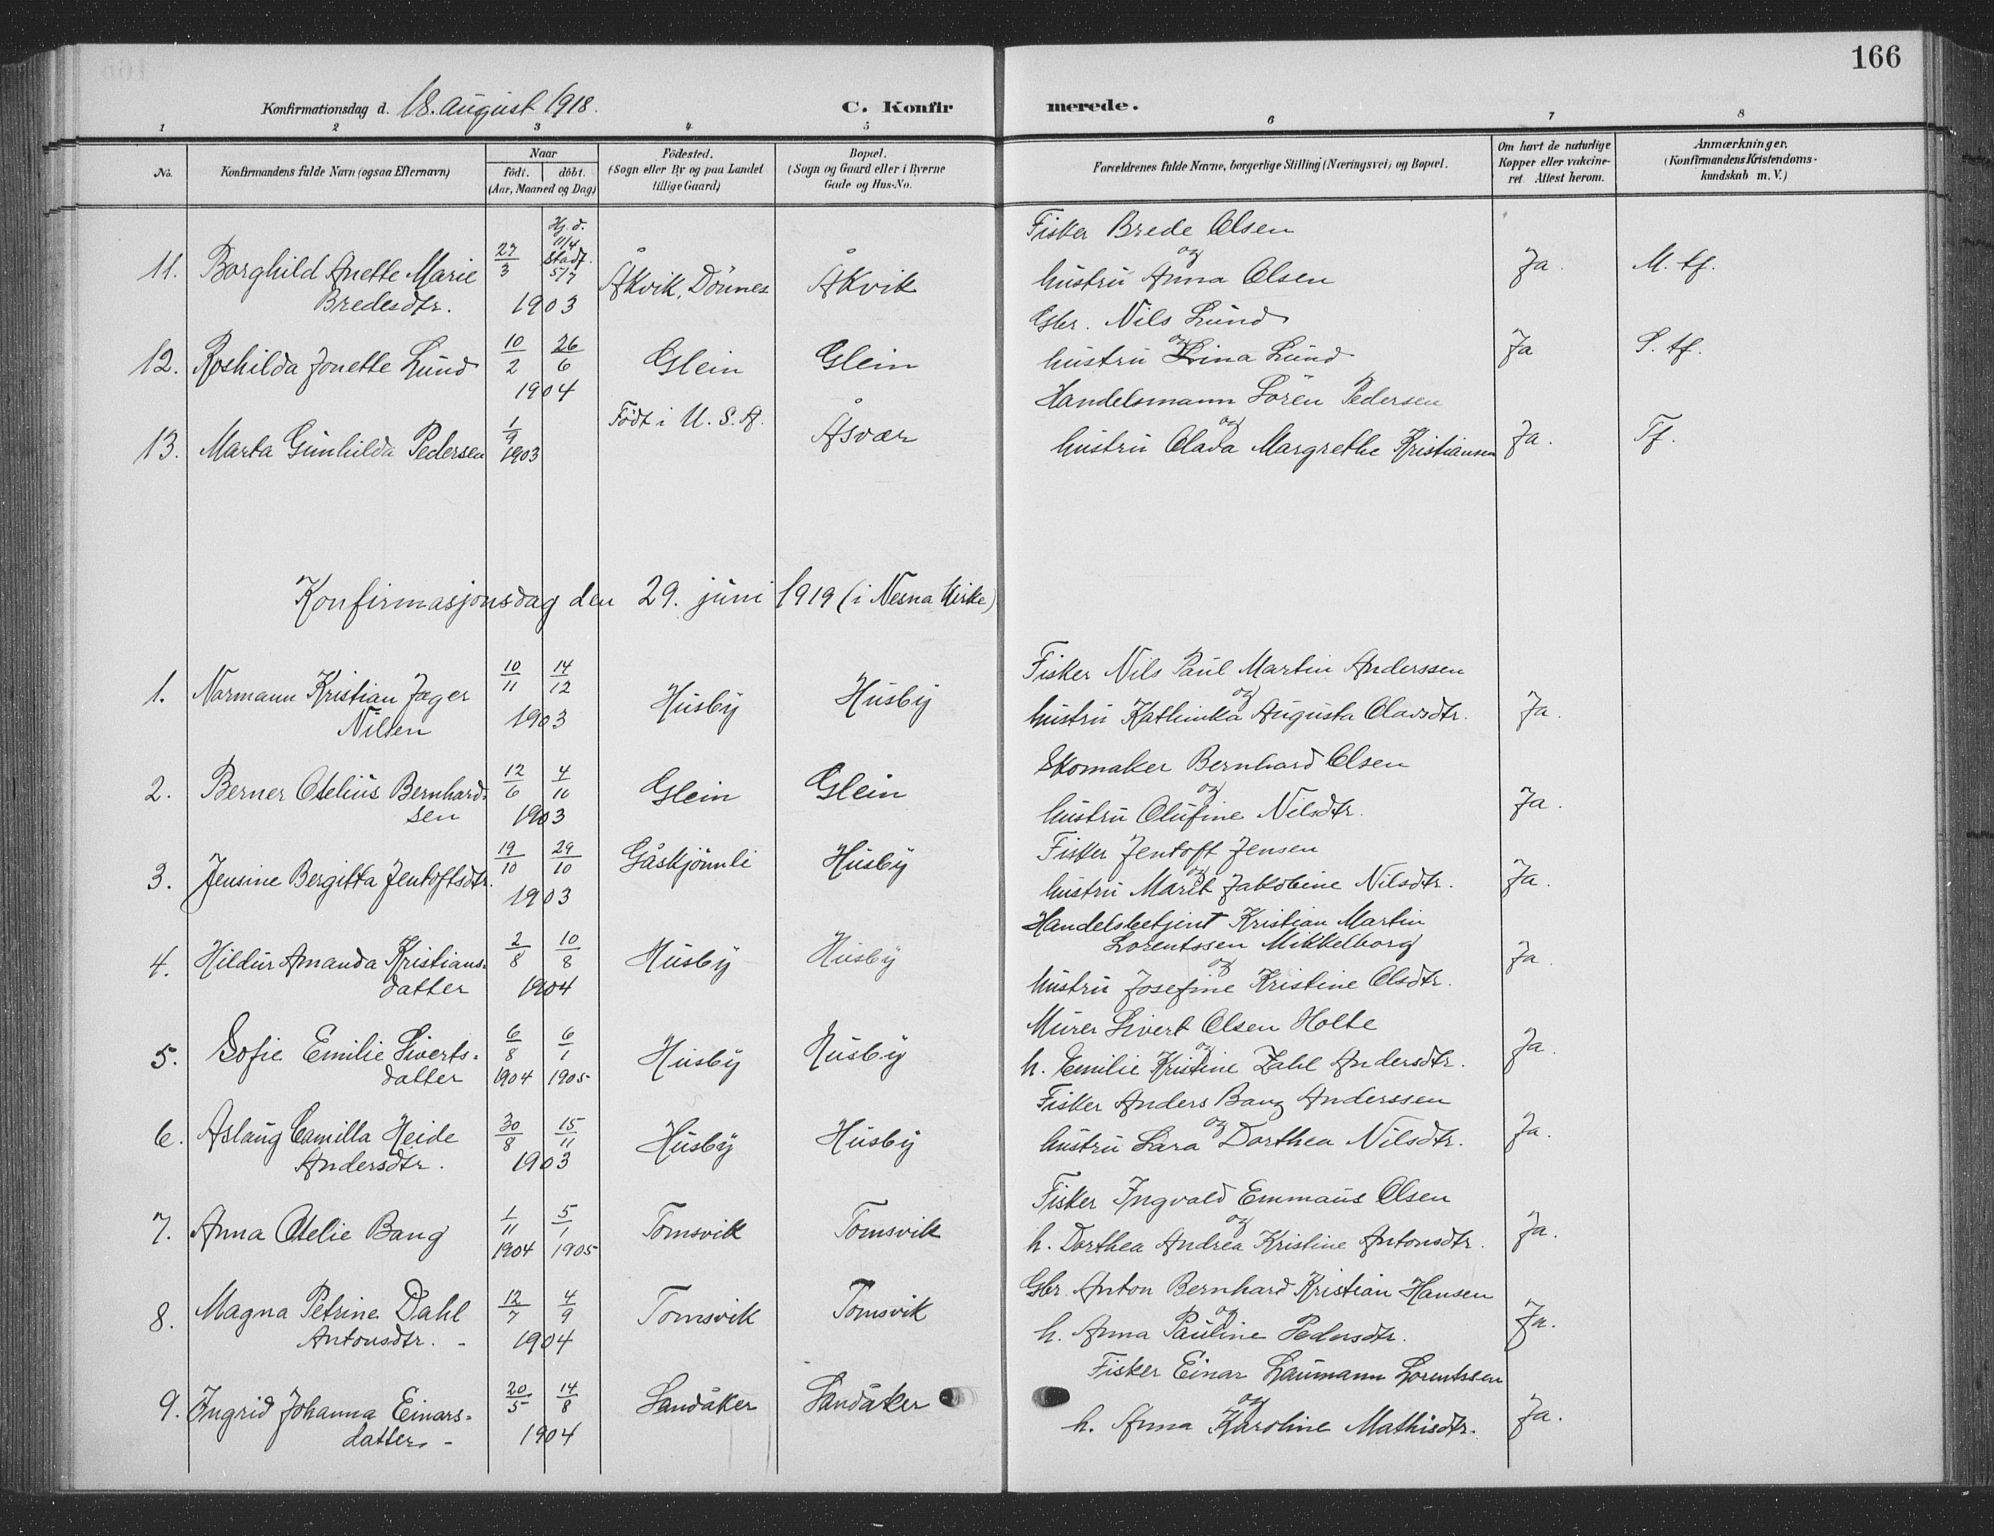 166
Konfirmationsdag d. 18. august 1918.
C. Konfirmerede.
1 2 3 4 5 6 7 8
No.
Konfirmandens fulde Navn (ogsaa Efternavn)
Naar
født. døbt.
(Aar, Maaned og Dag)
Födested.
(Sogn eller By og paa Landet
tillige Gaard)
Bopæl.
(Sogn og Gaard eller i Byerne
Gade og Hus-No.
Forældrenes fulde Navne, borgerlige Stilling (Næringsvei) og Bopæl.
Om havt de naturlige
Kopper eller vakcine-
ret Attest herom.
Anmærkninger,
(Konfirmandens Kristendoms-
kundskab m. V.)
Hj. d.
11/4
Stadf.
5/7
Fisker Brede Olsen
og
11. Borghild Anette Marie 27/3 Åkvik, Dönnes Åkvik hustru Anna Olsen Ja. M. tf.
Bredesdtr. 1903
Gbr. Nils Lund
og
12. Roshilda Jonette Lund 10/2 26/6 Glein Glein hustru Lina Lund Ja S. tf.
1904
Handelsmann Sören Pedersen
og
13. Marta Gunhilda Pedersen 1/9 1903 Födt i U. S. A. Åsvær hustru Olava Margrethe Kristiansen Ja. Tf.
Konfirmasjonsdag den 29. juni 1919 (i Nesna kirke)
Fisker Nils Paul Martin Anderssen
og
1. Normann Kristian Jager 10/11 14/12 Husby Husby hustru Kathinka Augusta Olavsdtr. Ja.
Nilsen 1903
Skomaker Bernhard Olsen
og
2. Berner Otelius Bernhard- 12/6 4/10 Glein Glein hustru Olufine Nilsdtr. Ja.
sen 1903
Fisker Jentoft Jensen
og
3. Jensine Bergitta Jentoftsdtr. 19/10 29/10 Gåskjönnli Husby hustru Marit Jakobine Nilsdtr. Ja.
1903
Handelsbetjent Kristian Martin
Lorentssen Mikkelborg
og
4. Hildur Amanda Kristians- 2/8 10/8 Husby Husby hustru Josefine Kristine Olsdtr. Ja.
datter 1904
Murer Sivert Olsen Holte
og
5. Sofie Emilie Siverts- 6/8 6/1 Husby Husby h. Emilie Kristine Zahl Andersdtr. Ja.
datter 1904 1905
Fisker Anders Bang Anderssen
og
6. Aslaug Camilla Heide 30/8 15/11 Husby Husby hustru Sara Dorthea Nilsdtr. Ja.
Andersdtr. 1903
Fisker Ingvald Emmaus Olsen
og
7. Anna Otelie Bang 1/11 5/1 Tomsvik Tomsvik h. Dorthea Andrea Kristine Antonsdtr. Ja.
1904 1905
Gbr. Anton Bernhard Kristian Hansen
og
8. Magna Petrine Dahl 12/7 4/9 Tomsvik Tomsvik h. Anna Pauline Pedersdtr. Ja.
Antonsdtr. 1904
Fisker Einar Laumann Lorentssen
og
9. Ingrid Johanna Einars- 20/5 14/8 Sandåker Sandåker h. Anna Karoline Mathisdtr. Ja.
datter 1904